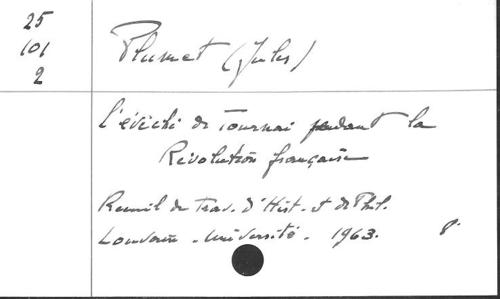 25
101
2
Plumet (Jules)
L'évêché de Tournai pendant la
Révolution française
Recueil de Trav. d'Hist. et de Phil.
Louvain - Université - 1963. 8°